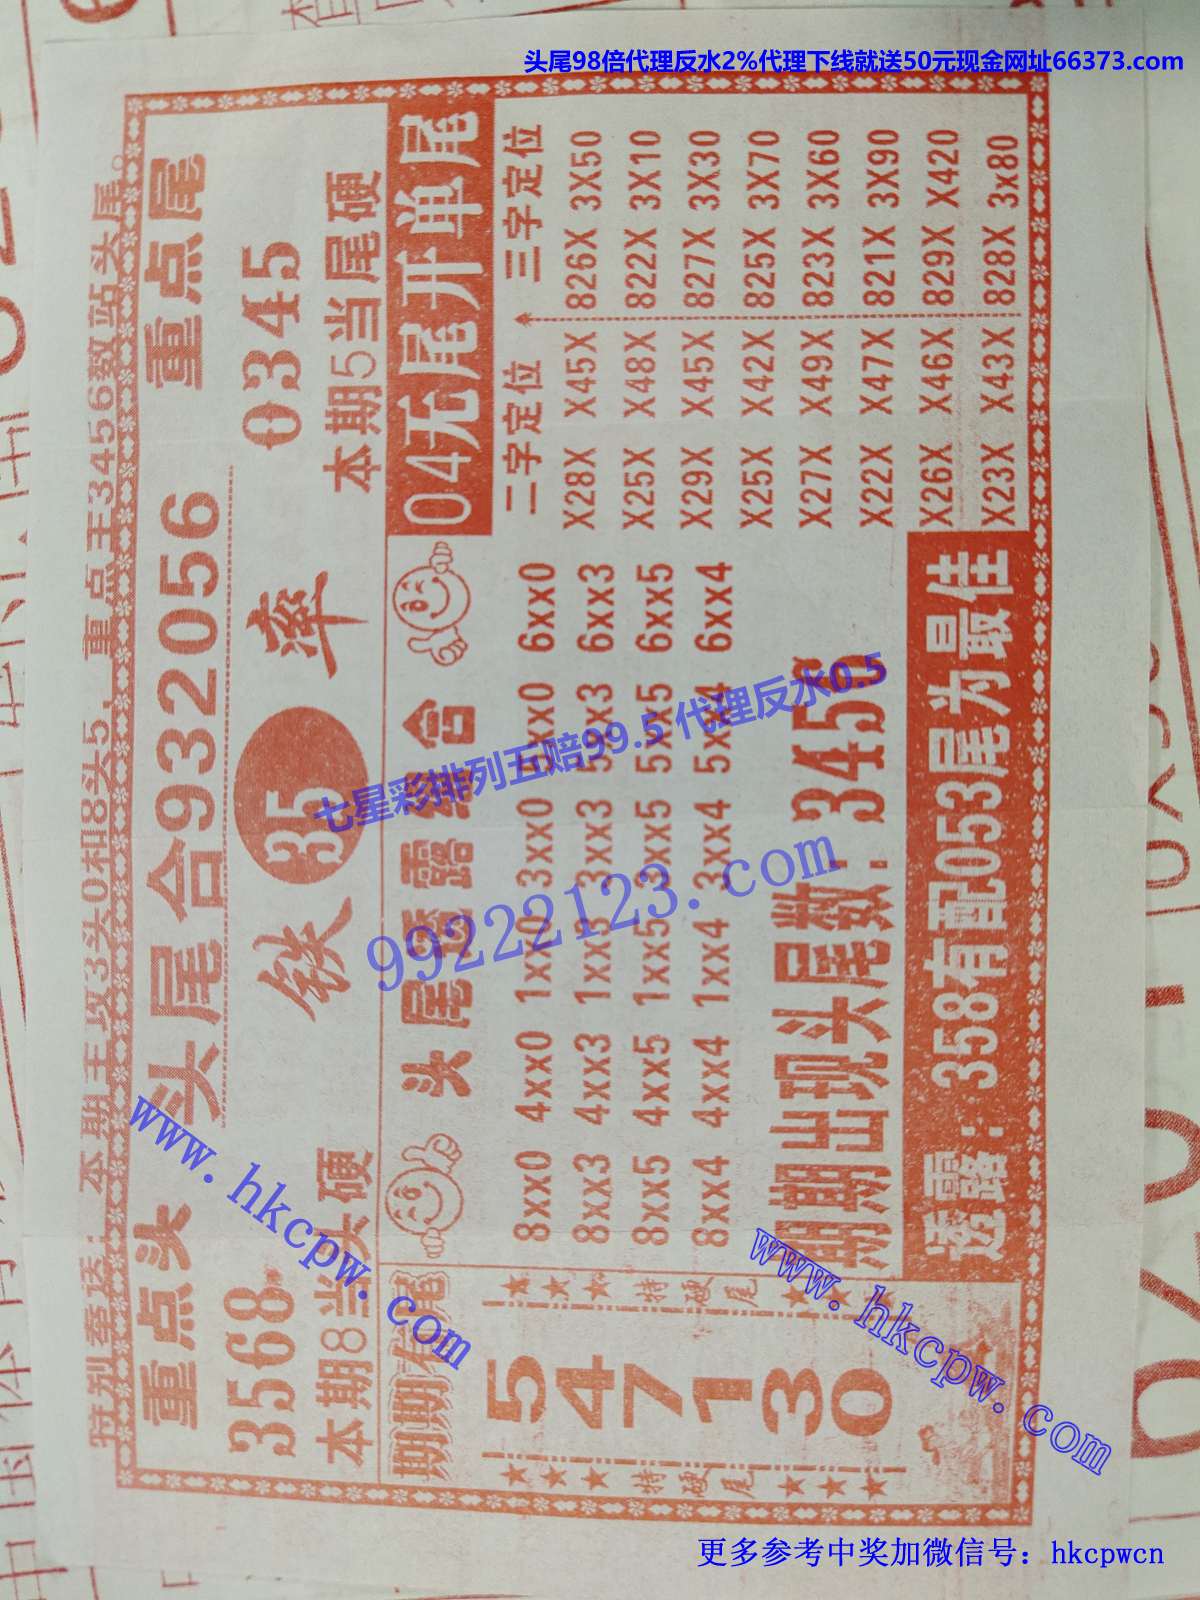 头尾98倍代理反水2%代理下线就送50元现金网址66373.com
特别奉送：本期主攻3头0和8头5，重点主3456数站头尾。
重点头
3568
本期8当头硬
头尾合932056
铁35率
重点尾
0345
本期5当尾硬
期期有尾
547130
★★★特硬尾★★★
★★★特硬尾★★★
头尾透露组合
8xx0 4xx0 1xx0 3xx0 5xx0 6xx0
8xx3 4xx3 1xx3 3xx3 5xx3 6xx3
8xx5 4xx5 1xx5 3xx5 5xx5 6xx5
8xx4 4xx4 1xx4 3xx4 5xx4 6xx4
期期出现头尾数：3456
透露：358有配053尾为最佳
04无尾开单尾
二字定位 三字定位
X28X X45X 826X 3X50
X25X X48X 822X 3X10
X29X X45X 827X 3X30
X25X X42X 825X 3X70
X27X X49X 823X 3X60
X22X X47X 821X 3X90
X26X X46X 829X X420
X23X X43X 828X 3x80
七星彩排列五赔99.5 代理反水0.5
99222123.com
www.hkcpw.com
www.hkcpw.com
更多参考中奖加微信号：hkcpwcn